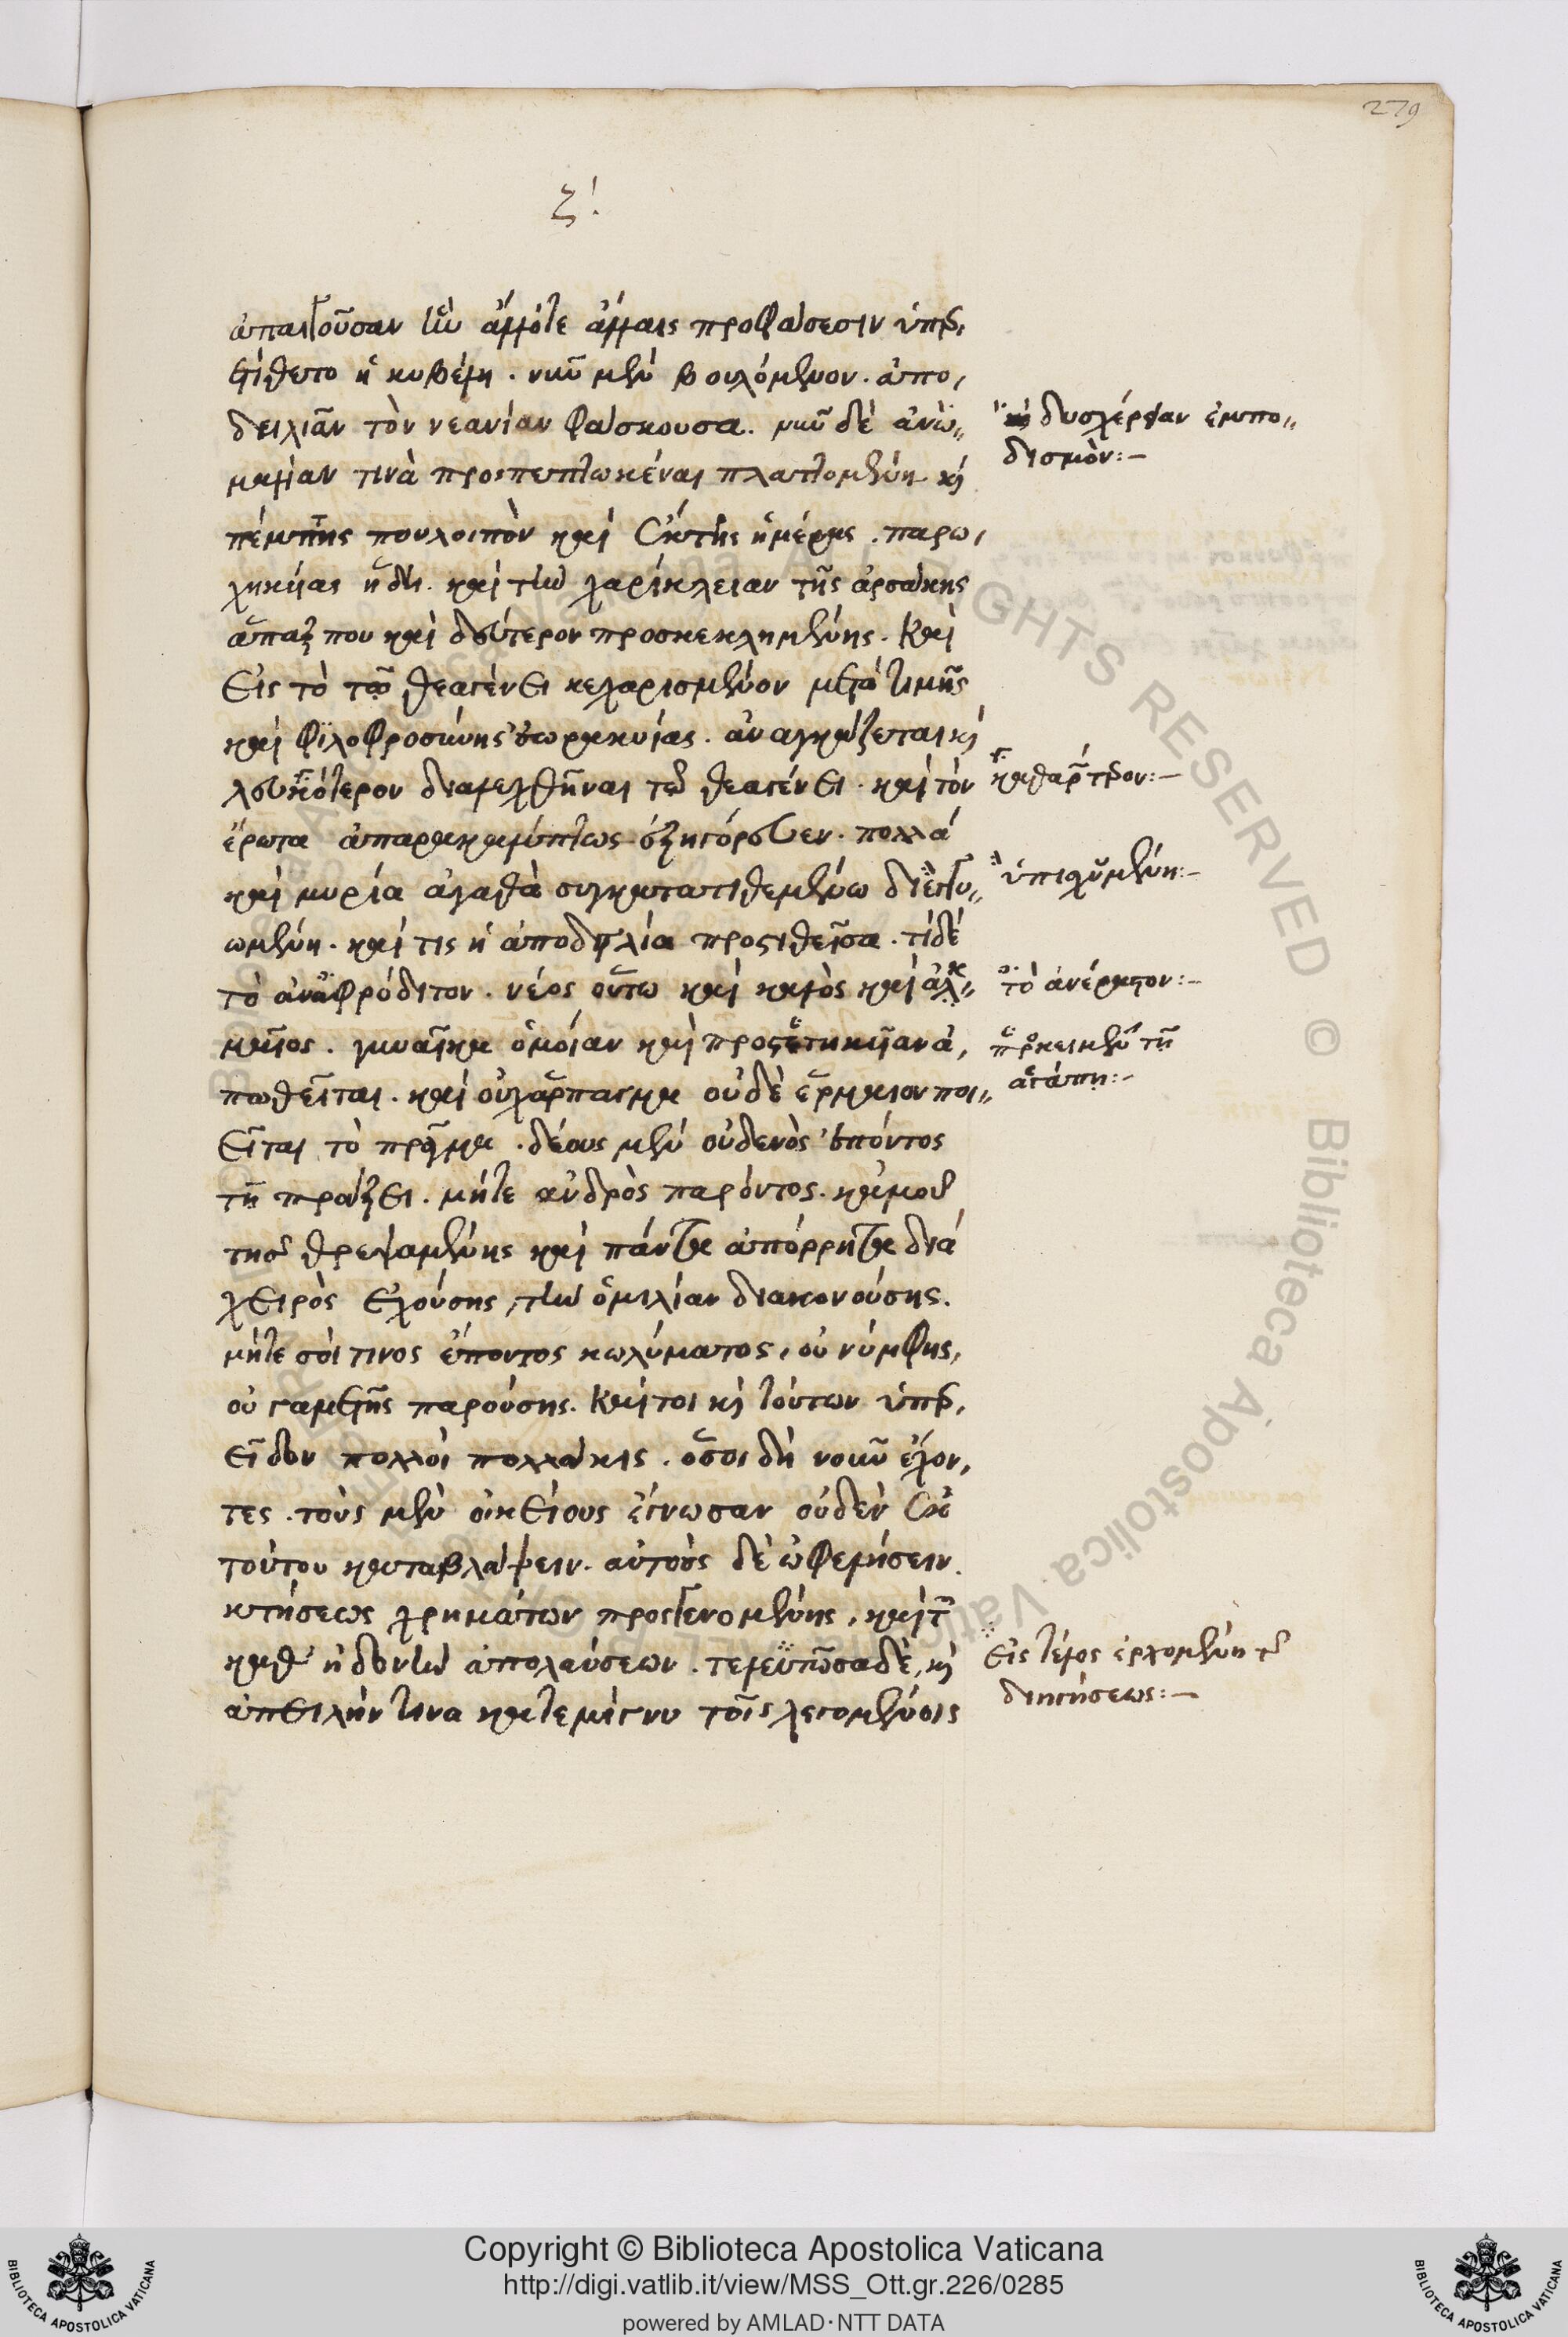 279
ζ!
ἀπαιτοῦσαν ἣν ἄλλοτε ἄλλαις προφάσεσιν ὑπερ,
ετίθετο ἡ κυβέλη. νῦν μὲν βουλόμενον. ἀπο,
δειλιᾶν τὸν νεανίαν φάσκουσα. νῦν δὲ ἀνω,,
μαλίαν τινὰ προσπεπτωκέναι πλαττομένη καὶ
πέμπτης που λοιπὸν καὶ ἕκτης ἡμέρας. παρω,
χηκυίας ἤδη. καὶ τὴν χαρίκλειαν τῆς ἀρσάκης
ἅπαξ που καὶ δεύτερον προσκεκλημένης. καὶ
εἰς τὸ τῷ θεαγένει κεχαρισμένον μετὰ τιμῆς
καὶ φιλοφροσύνης ἑωρακυίας. ἀναγκάζεται καὶ
λευκότερον διαλεχθῆναι τῷ θεαγένει. καὶ τὸν
ἔρωτα ἀπαρακαλύπτως ἐξηγόρευεν. πολλά
καὶ μυρία ἀγαθὰ συγκατατιθεμένω διεγγυ,,
ωμένη. καὶ τις ἡ ἀποδειλία προστιθεῖσα. τί δέ
τὸ ἀναφρόδιτον. νέος οὕτω καὶ καλὸς καὶ ἀκ,,
μαῖος. γυναῖκα ὁμοίαν καὶ προστετηκυῖαν ἀ,
πωθεῖται. καὶ οὐχ ἅρπαγμα οὐδὲ ἕρμαιον ποι,,
εῖται τὸ πρᾶγμα. δέους μὲν οὐδενὸς ἐπόντος
τῇ πράξει. μήτε ἀνδρὸς παρόντος. κἀμοῦ
τῆς θρεψαμένης καὶ πάντα ἀπόρρητα διά
χειρὸς ἐχούσης, τὴν ὁμιλίαν διακονούσης.
μήτε σοί τινος ἐπόντος κωλύματος, οὐ νύμφης,
οὐ γαμετῆς παρούσης. καίτοι καὶ τούτων ὑπερ,
εῖδον πολλοὶ πολλάκις. ὅσοι δὴ νοῦν ἔχον,
τες. τοὺς μὲν οἰκείους ἔγνωσαν οὐδὲν ἐκ
τούτου καταβλάψειν. αὑτοὺς δὲ ὠφελήσειν.
κτήσεως χρημάτων προσγενομένης, καὶ τῆς
καθ᾽ ἡδονὴν ἀπολαύσεων. τελευτῶσα δέ, καὶ
ἀπειλήν τινα κατεμίγνυ τοῖς λεγομένοις
δυσχέρειαν ἐμπο,,
δισμόν:—
καθαρώτερον:—
ὑπισχνουμένη:—
τὸ ἀνέραστον:—
προσκειμένην τῇ
ἀγάπῃ:—
εἰς τέλος ἐρχομένη τῆς
διηγήσεως:—
Copyright © Biblioteca Apostolica Vaticana
http://digi.vatlib.it/view/MSS_Ott.gr.226/0285
powered by AMLAD·NTT DATA